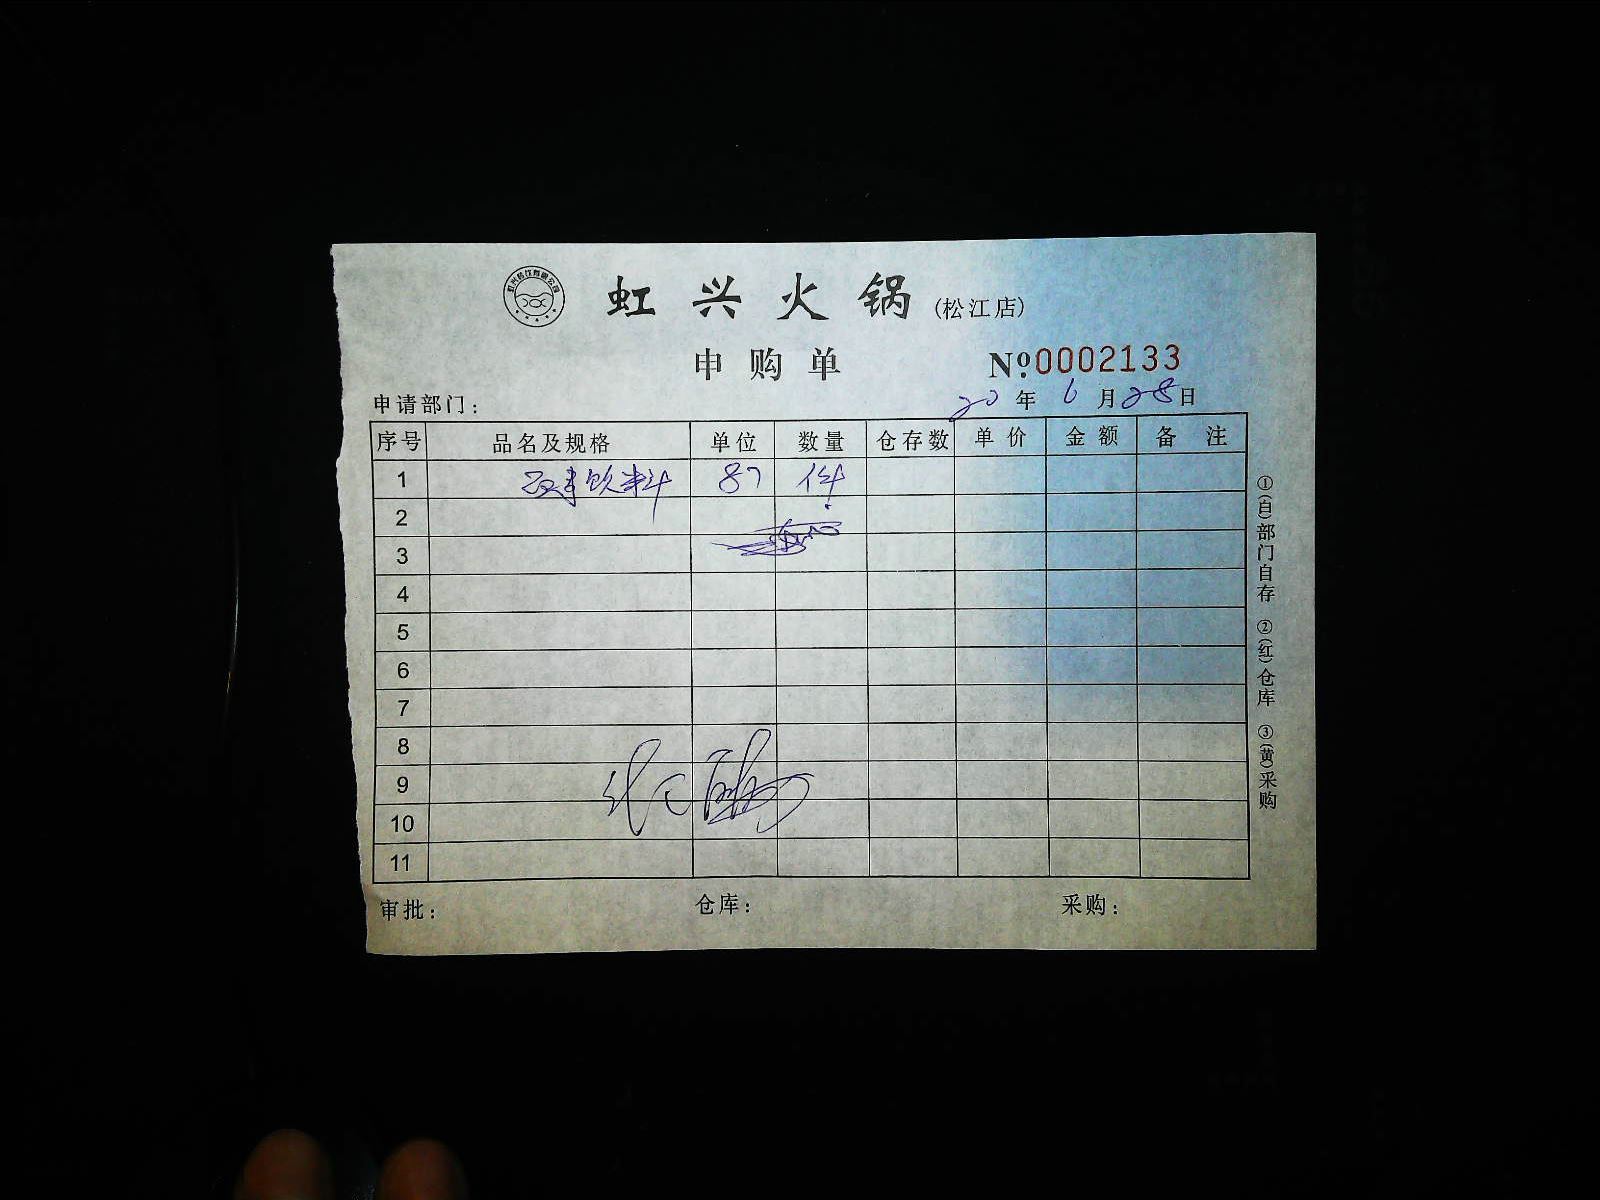 虹兴火锅(松江店)
申购单 №0002133
申请部门: 20年6月28日
序号 品名及规格 单位 数量 仓存数 单价 金额 备注
1 饮料 87 件
2
3
4
5
6
7
8
9
10
11
审批: 仓库: 采购:
①(白)部门自存 ②(红)仓库 ③(黄)采购